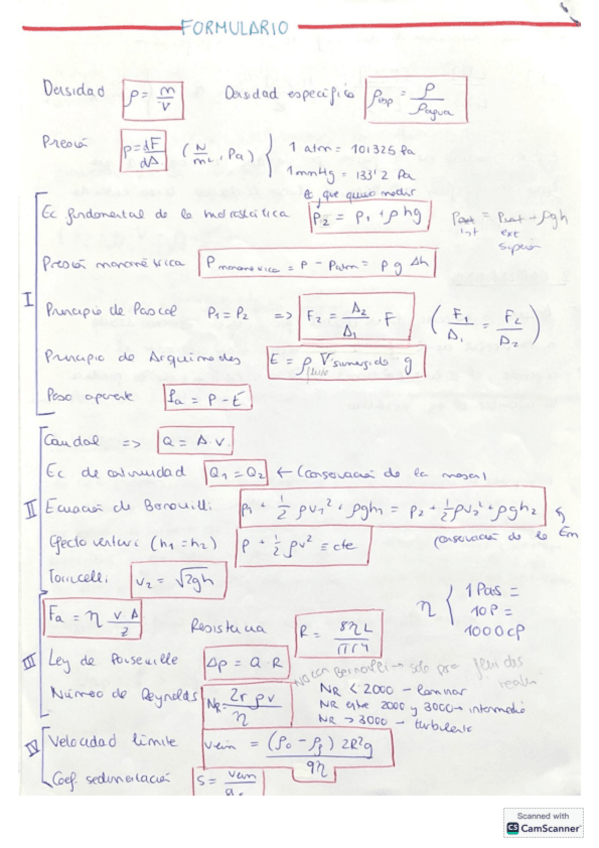 FORMULARIO
Densidad ρ = m/v Densidad específica ρesp = ρ/ρagua
Presión p = dF/dA (N/m², Pa) { 1 atm = 101325 Pa
1 mmHg = 133'2 Pa
el que quiero medir
Ec fundamental de la hidrostática P2 = P1 + ρhg = + ρgh
int ext
superior
Presión manométrica Pmanométrica = P - Patm = ρ g Δh
I
Principio de Pascal P1 = P2 => F2 = A2/A1 · F (F1/A1 = F2/A2)
Principio de Arquímedes E = ρfluido Vsumergido g
Peso aparente Pa = P - E
Caudal => Q = A · v
Ec de continuidad Q1 = Q2 ← (conservación de la masa)
II Ecuación de Bernouilli P1 + 1/2 ρv1² + ρgh1 = P2 + 1/2 ρv2² + ρgh2
conservación de la Em
Efecto venturi (h1 = h2) P + 1/2 ρv² = cte
Torricelli v2 = √2gh
Fa = η v A/z Resistencia R = 8ηL/πr4 η { 1 Pas =
10P =
1000cP
III Ley de Poiseuille Δp = Q · R NO con Bernoulli → solo para fluidos
reales
Número de Reynolds NR = 2r ρv/η NR < 2000 - laminar
NR entre 2000 y 3000 → intermedio
NR > 3000 - turbulento
IV Velocidad límite vlim = (ρo - ρf) 2R²g/9η
Coef. sedimentación S = vlim/
Scanned with
CS CamScanner